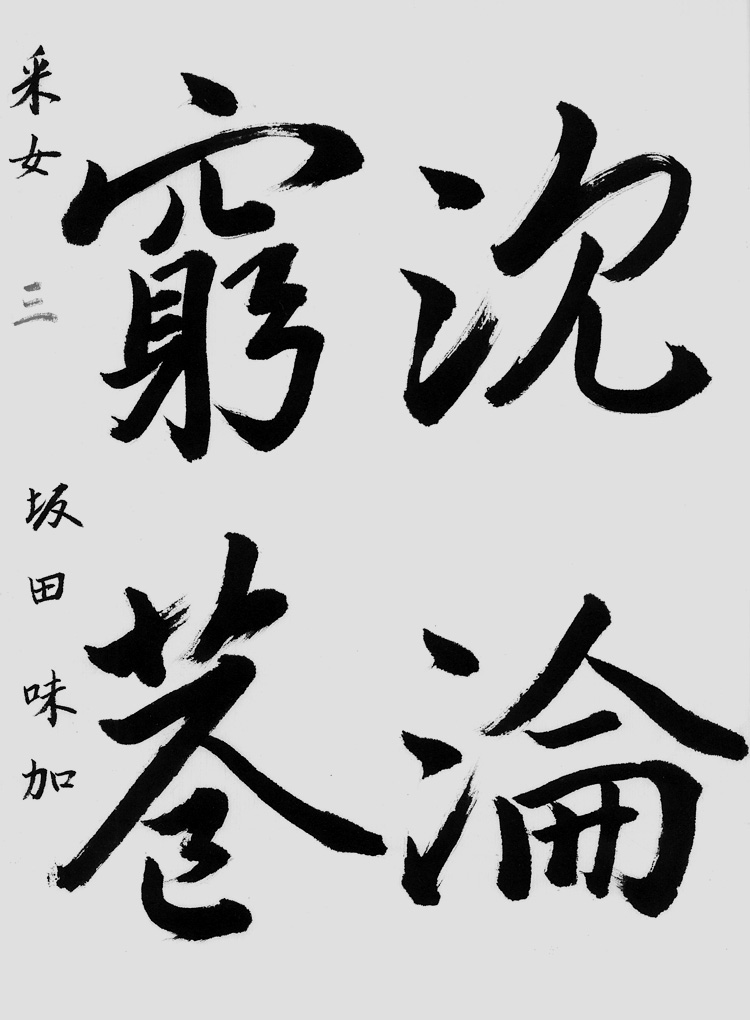 沈淪
窮巷
采女 三 坂田 味加